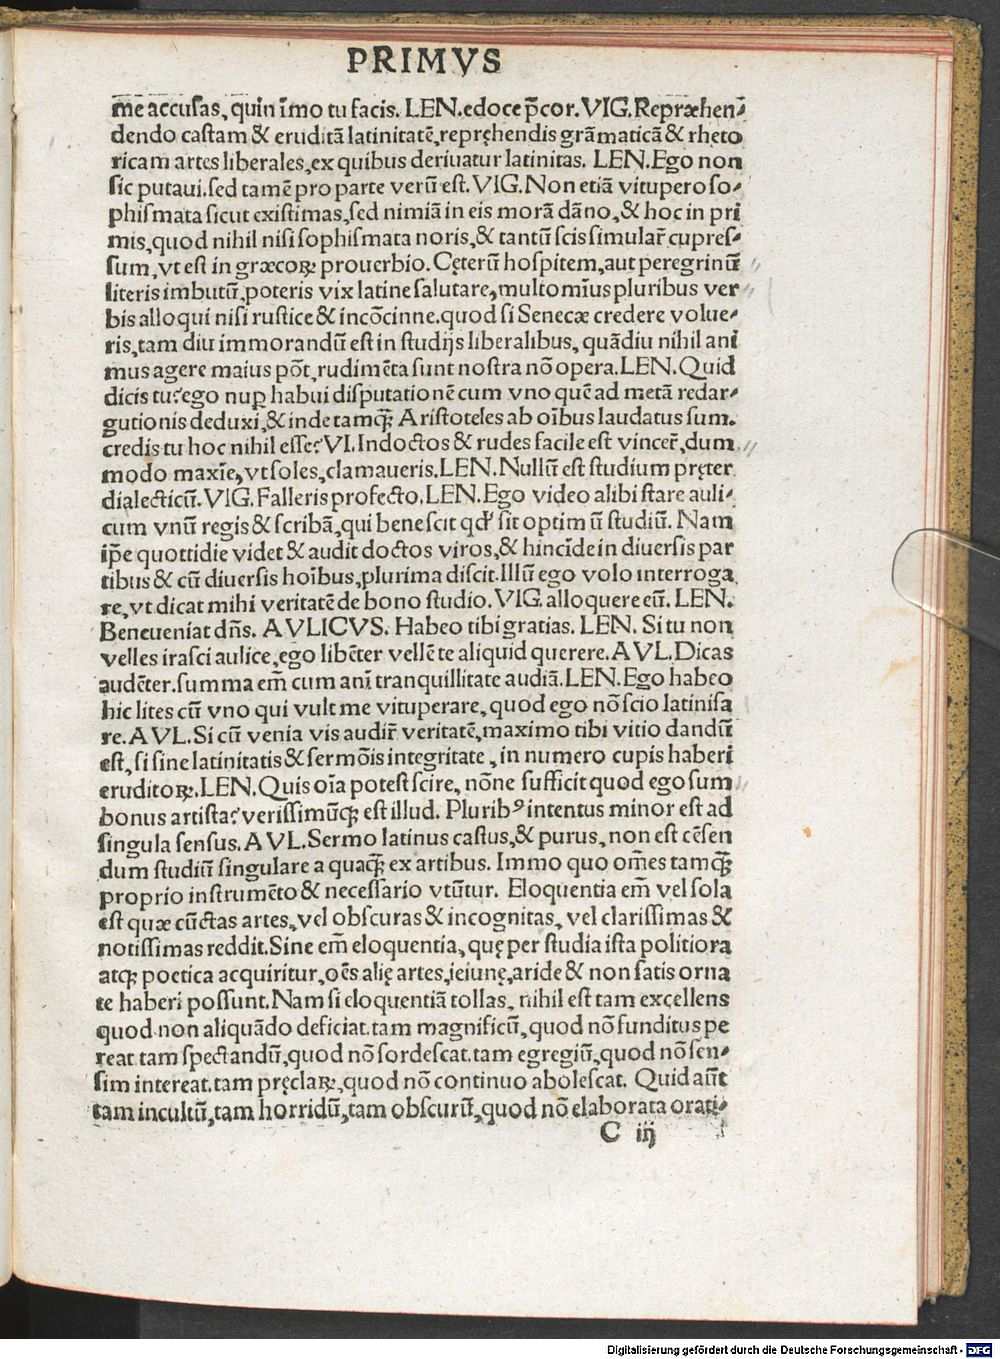 PRIMVS
me accusas, quin īmo tu facis. LEN. edoce p̄cor. VIG. Repræhen⸗
dendo castam & eruditā latinitatē, repręhendis grāmaticā & rheto
ricam artes liberales, ex quibus deriuatur latinitas. LEN. Ego non
sic putaui. sed tamē pro parte verū est. VIG. Non etiā vitupero so⸗
phismata sicut existimas, sed nimiā in eis morā dāno, & hoc in pri
mis, quod nihil nisi sophismata noris, & tantū scis simular̄ cupres⸗
sum, vt est in græcoꝝ prouerbio. Cęterū hospitem, aut peregrinū
literis imbutū, poteris vix latine salutare, multo mīus pluribus ver
bis alloqui nisi rustice & incōcinne. quod si Senecæ credere volue⸗
ris, tam diu immorandū est in studijs liberalibus, quādiu nihil ani
mus agere maius pōt, rudimēta sunt nostra nō opera. LEN. Quid
dicis tu? ego nuꝑ habui disputationē cum vno quē ad metā redar⸗
gutionis deduxi, & inde tamqꝫ Aristoteles ab oībus laudatus sum.
credis tu hoc nihil esse? VI. Indoctos & rudes facile est vincer̄, dum
modo maxīe, vt soles, clamaueris. LEN. Nullū est studium pręter
dialecticū. VIG. Falleris profecto. LEN. Ego video alibi stare auli⸗
cum vnū regis & scribā, qui bene scit qd̄ sit optimū studiū. Nam
ip̄e quottidie videt & audit doctos viros, & hincīde in diuersis par
tibus & cū diuersis hoībus, plurima discit. Illū ego volo interroga
re, vt dicat mihi veritatē de bono studio. VIG. alloquere eū. LEN.
Beneueniat dn̄s. AVLICVS. Habeo tibi gratias. LEN. Si tu non
velles irasci aulice, ego libēter vellē te aliquid querere. AVL. Dicas
audēter. summa em̄ cum anī tranquillitate audiā. LEN. Ego habeo
hic lites cū vno qui vult me vituperare, quod ego nō scio latinisa
re. AVL. Si cū venia vis audir̄ veritatē, maximo tibi vitio dandū
est, si sine latinitatis & sermōis integritate, in numero cupis haberi
eruditoꝝ. LEN. Quis oīa potest scire, nōne sufficit quod ego sum
bonus artista? verissimūqꝫ est illud. Pluribꝰ intentus minor est ad
singula sensus. AVL. Sermo latinus castus, & purus, non est cēsen
dum studiū singulare a quaqꝫ ex artibus. Immo quo om̄es tamqꝫ
proprio instrumēto & necessario vtūtur. Eloquentia em̄ vel sola
est quæ cūctas artes, vel obscuras & incognitas, vel clarissimas &
notissimas reddit. Sine em̄ eloquentia, quę per studia ista politiora
atqꝫ poetica acquiritur, oēs alię artes, ieiunę, aride & non satis orna
te haberi possunt. Nam si eloquentiā tollas, nihil est tam excellens
quod non aliquādo deficiat. tam magnificū, quod nō funditus pe
reat. tam spectandū, quod nō sordescat. tam egregiū, quod nō sen⸗
sim intereat. tam pręclaꝝ, quod nō continuo abolescat. Quid aūt
tam incultū, tam horridū, tam obscurū, quod nō elaborata orati⸗
C iij
Digitalisierung gefördert durch die Deutsche Forschungsgemeinschaft - DFG